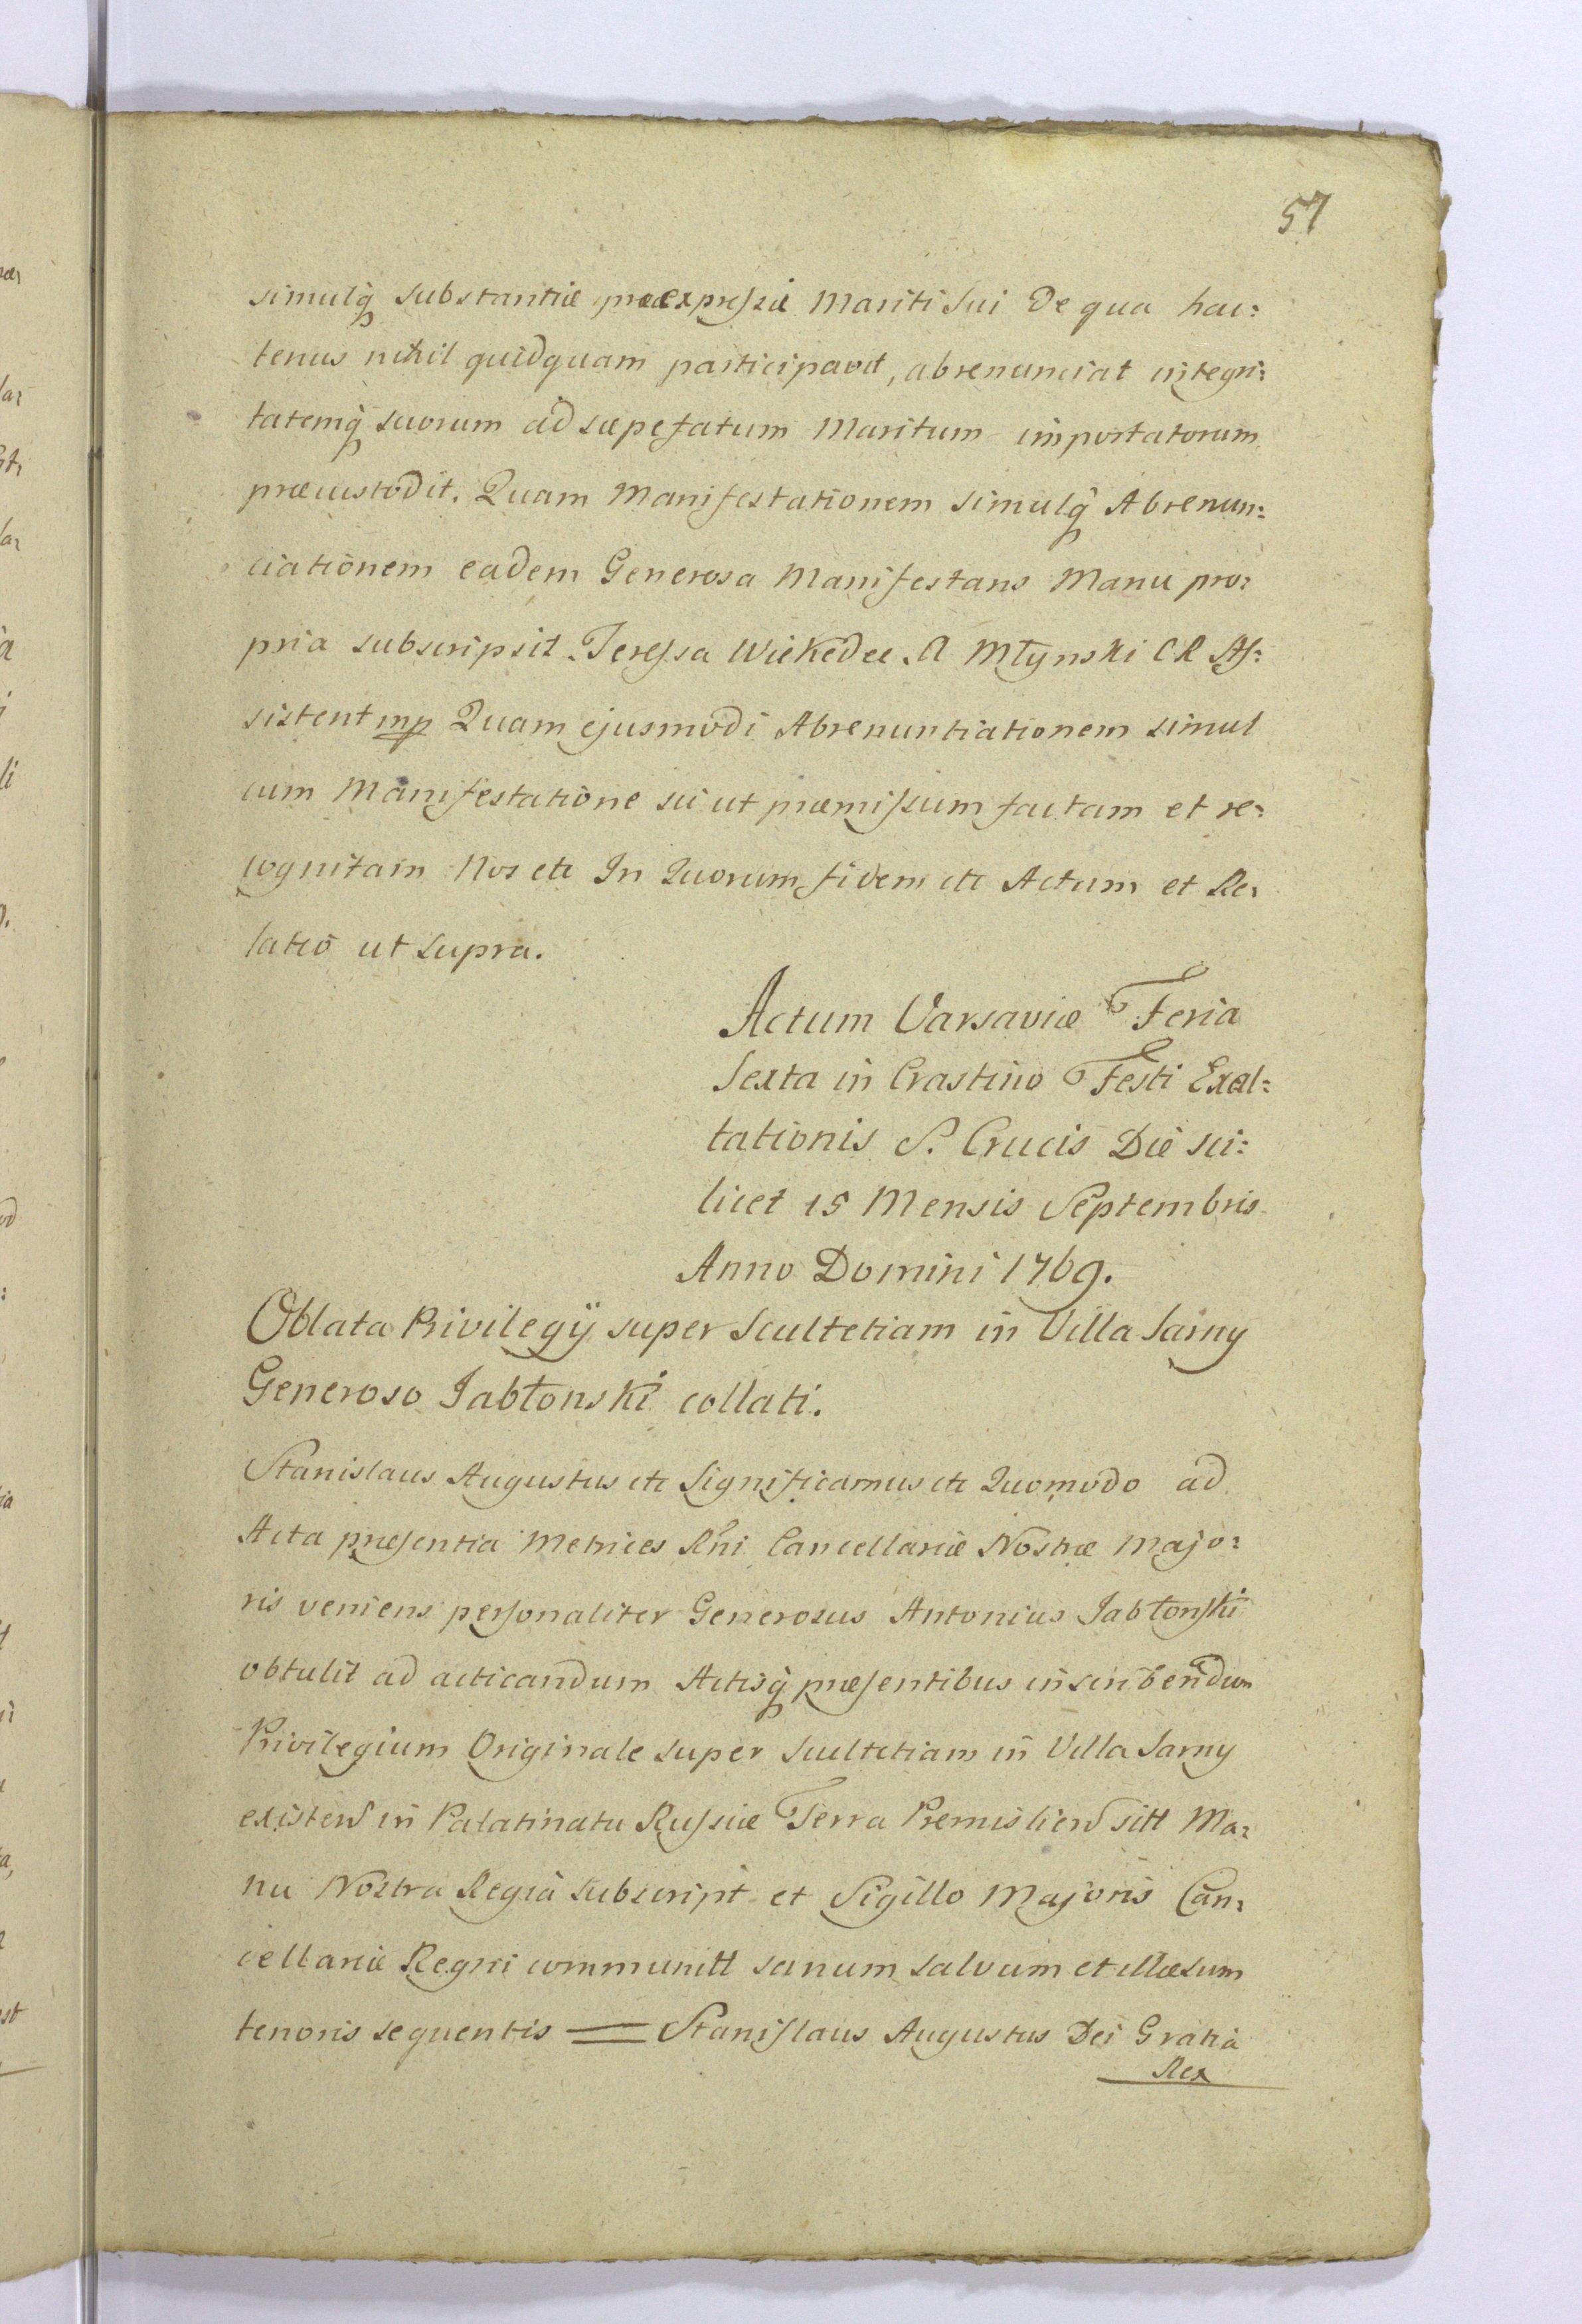 57
simulq̃ substantiæ præexpressæ Mariti Sui de qua hac:
tenus nihil quidquam participavit, abrenunciat integri:
tatemq̃ suorum ad sæpefatum Maritum importatorum
præcustodit. Quam Manifestationem simulq̃ Abrenun:
ciationem eadem Generosa Manifestans Manu pro:
pria subscripsit Teressa Wiekedee. A Młynski CR As:
sistent mp Quam ejusmodi Abrenuntiationem simul
cum Manifestatione sic ut præmissum factam et re:
cognitam Nos etc In Quorum fidem etc Actum et Re:
latio ut supra.
Actum Varsaviæ Feria
Sexta in Crastino Festi Exal:
tationis S. Crucis Die sci:
licet 15 Mensis Septembris
Anno Domini 1769.
Oblata Privilegÿ super Scultetiam in Villa Sarny
Generoso Jabłonski collati.
Stanislaus Augustus etc Significamus etc Quomodo ad
Acta præsentia Metrices Rñi Cancellariæ Nostræ Majo:
ris veniens personaliter Generosus Antonius Jabłonski
obtulit ad acticandum Actisq̃ præsentibus inscribendum
Privilegium Originale super Scultetiam in Villa Sarny
existen in Palatinatu Russiæ Terra Premislien sitt Ma:
nu Nostra Regia subscript et Sigillo Majoris Can:
cellariæ Regni communitt sanum salvum et illæsum
tenoris sequentis = Stanislaus Augustus Dei Gratia
Rex